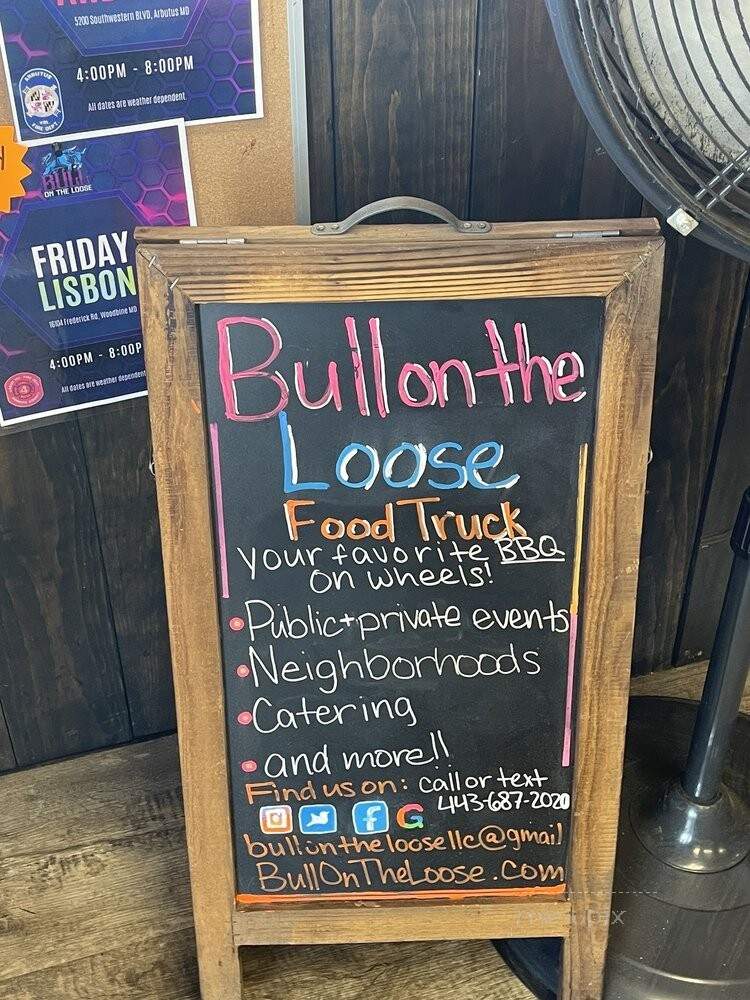 5200 Southwestern BLVD, Arbutus MD
4:00PM - 8:00PM
All dates are weather dependent
ARBUTUS
FIRE DEPT
BULL
ON THE LOOSE
FRIDAY
LISBON
16104 Frederick Rd, Woodbine MD
4:00PM - 8:00P
All dates are weather dependent
Bull on the
Loose
Food Truck
your favorite BBQ
on wheels!
• Public + private events
• Neighborhoods
• Catering
• and more!!
Find us on: call or text
443-687-2020
f G
bullontheloosellc@gmail
BullOnTheLoose.com